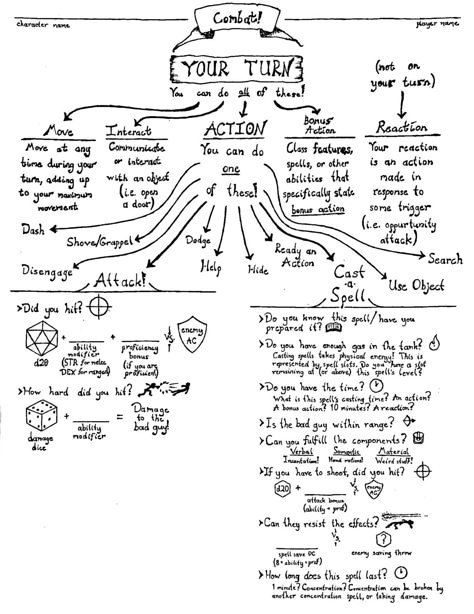 Combat!
character name
player name
YOUR TURN
You can do all of these!
(not on
your turn)
Move
Move at any
time during your
turn, adding up
to your maximum
movement
Interact
Communicate
or interact
with an object
(i.e. open
a door)
ACTION
You can do
one
of these!
Bonus
Action
Class features,
spells, or other
abilities that
specifically state
bonus action
Reaction
Your reaction
is an action
made in
response to
some trigger
(i.e. oppurtunity
attack)
Dash
Shove/Grappel
Disengage
Dodge
Help
Hide
Ready an
Action
Search
Use Object
Attack!
>Did you hit?
d20
+
ability
modifier
(STR for melee
DEX for ranged)
+
proficiency
bonus
(if you are
proficient)
vs
enemy
AC
>How hard did you hit?
damage
dice
+
ability
modifier
=
Damage
to the
bad guy!
Cast
-a-
Spell
>Do you know this spell/have you
prepared it?
>Do you have enough gas in the tank?
Casting spells takes physical energy! This is
represented by spell slots. Do you have a slot
remaining at (or above) this spell's level?
>Do you have the time?
What is this spell's casting time? An action?
A bonus action? 10 minutes? A reaction?
>Is the bad guy within range?
>Can you fulfill the components?
Verbal Somatic Material
Incantation! Hand motions! Weird stuff!
>If you have to shoot, did you hit?
d20
+
attack bonus
(ability + prof)
vs
enemy
AC
>Can they resist the effects?
spell save DC
(8 + ability + prof)
vs
?
enemy saving throw
>How long does this spell last?
1 minute? Concentration? Concentration can be broken by
another concentration spell, or taking damage.